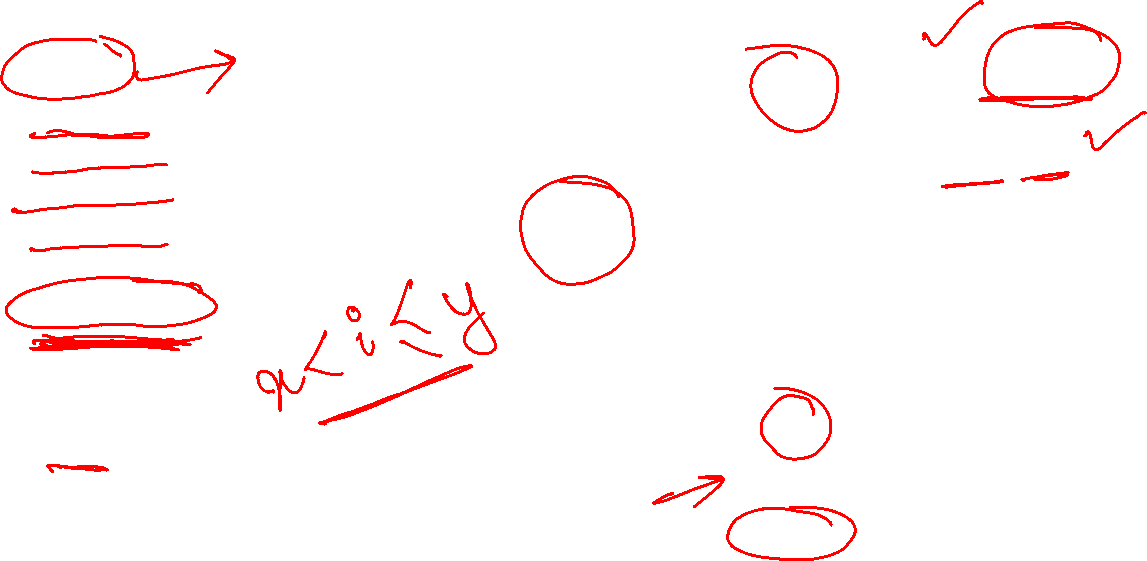 x < i ≤ y